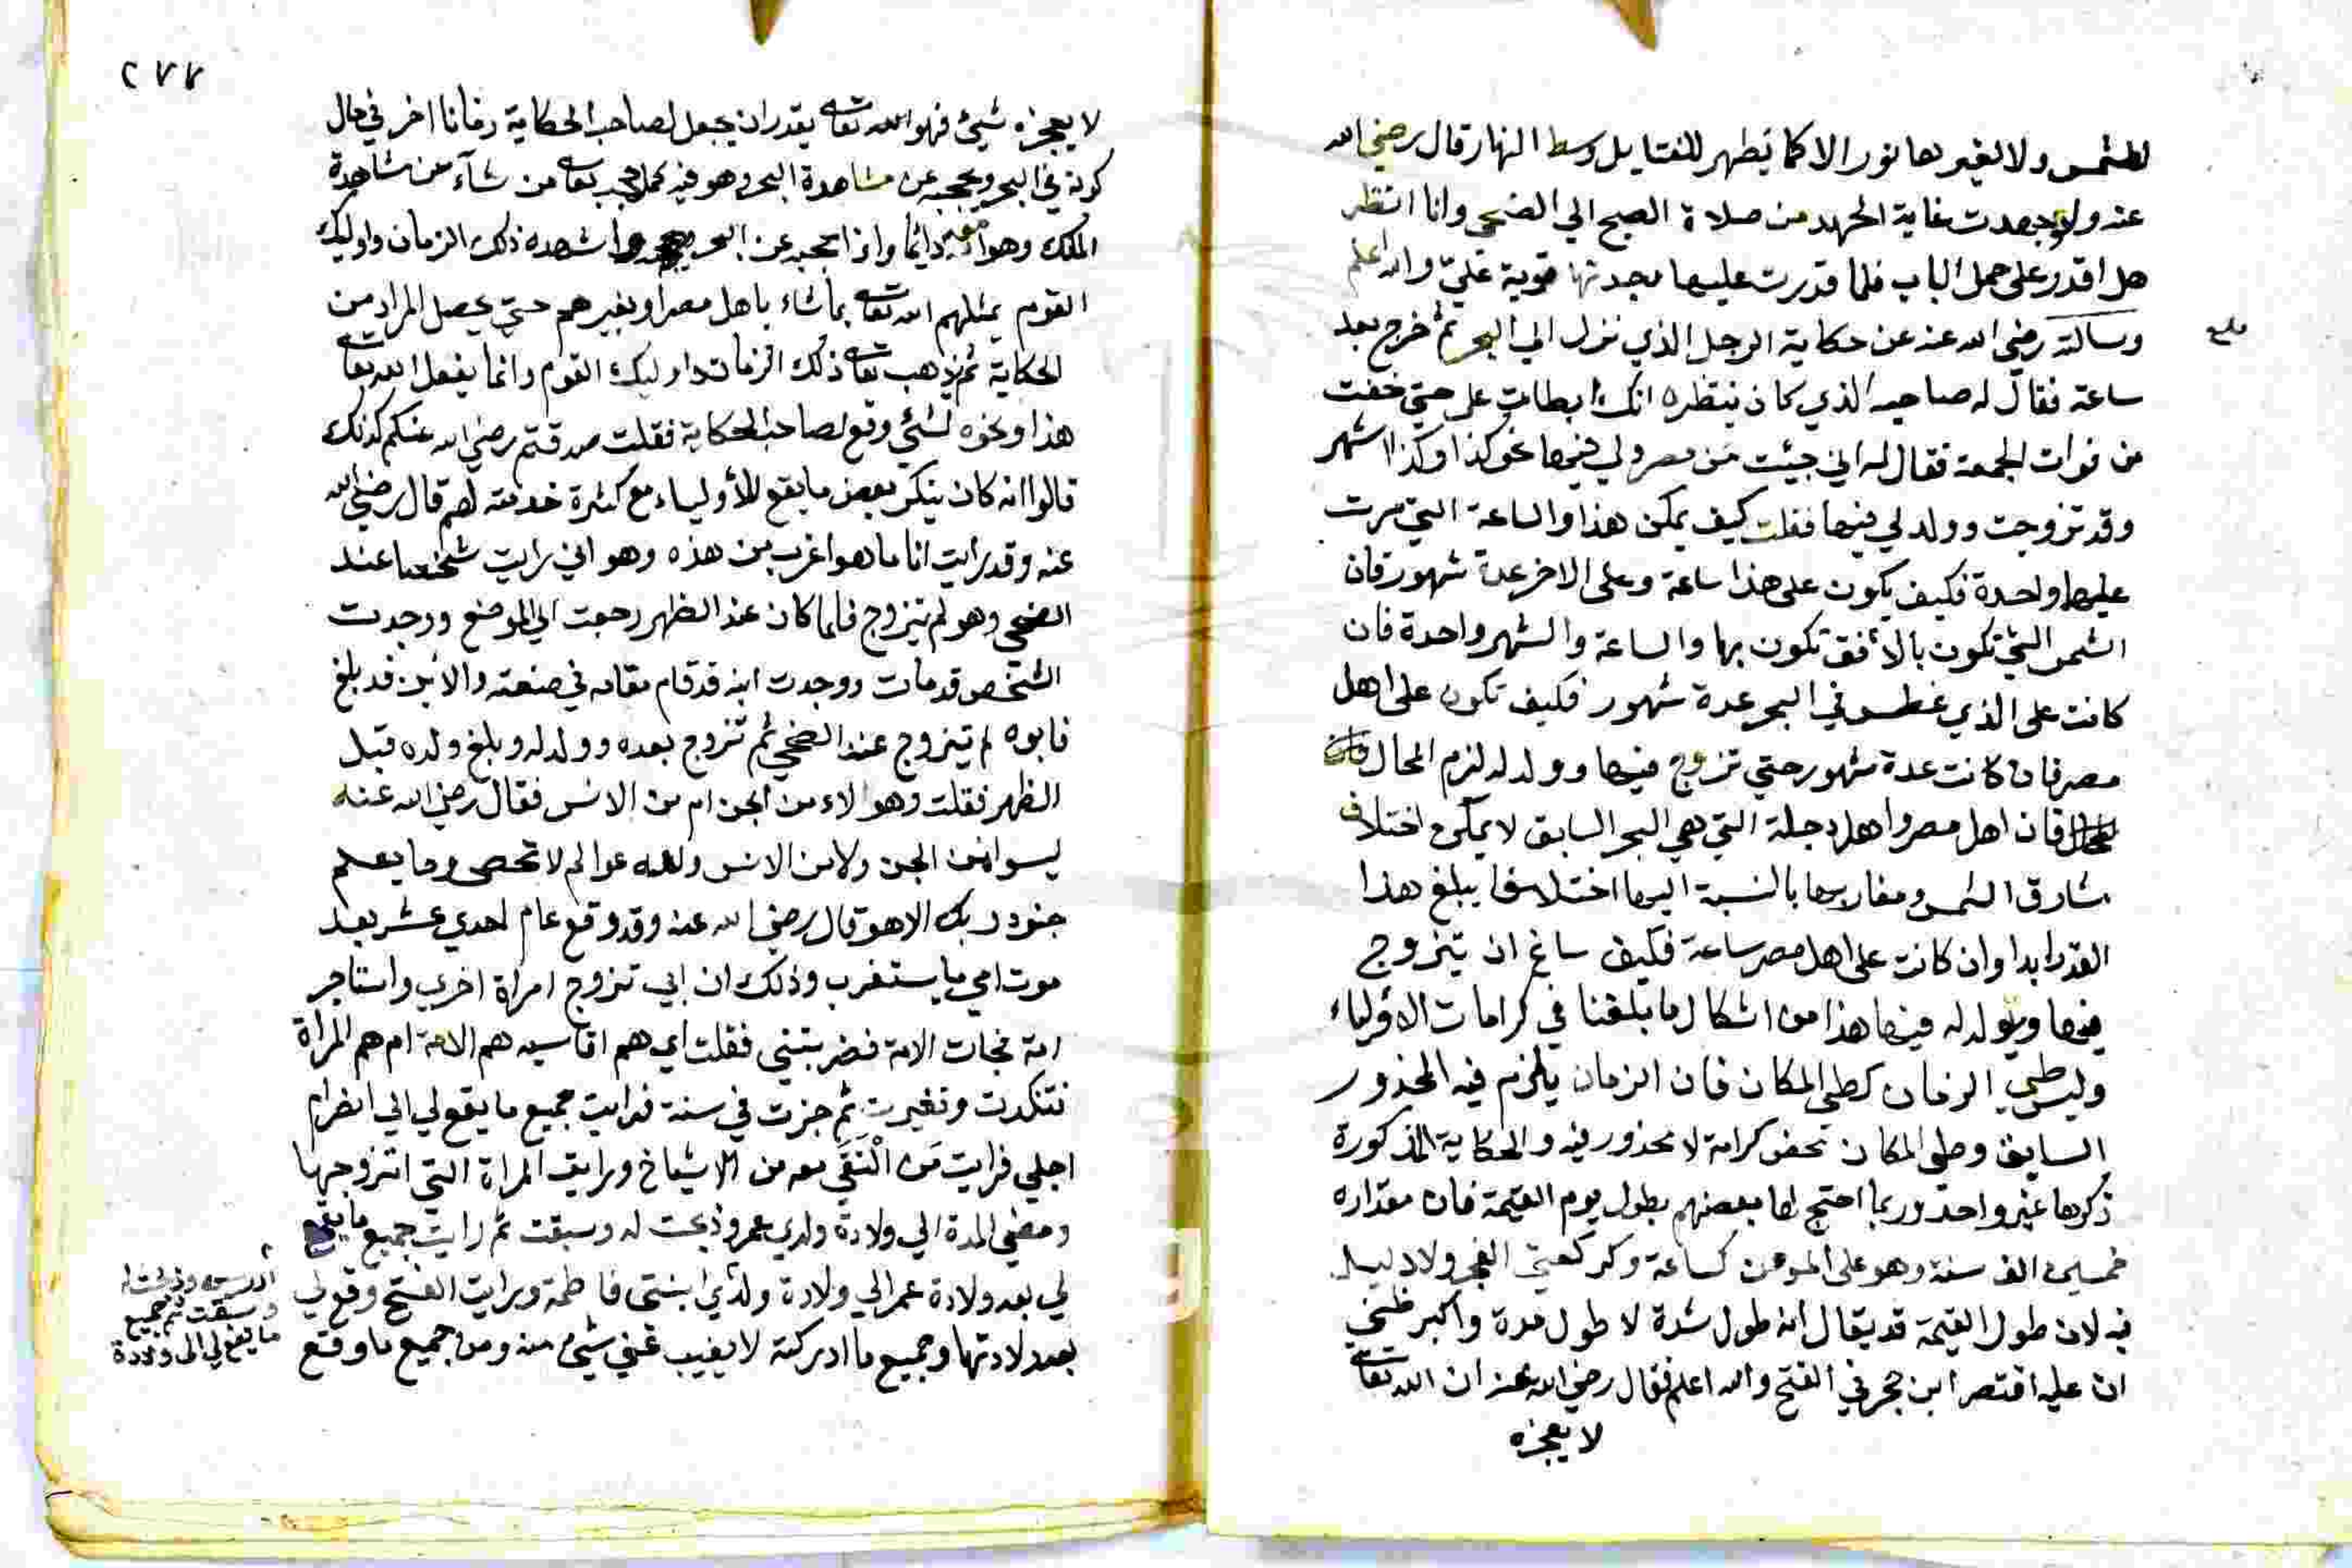 للشمس ولا لغيرها نورا الا كما يظهر للفتايل وسط النهار قال رضي الله
عنه ولو جهدت غاية الجهد من صلاة الصبح الي الضحى وانا انتظر
هل اقدر على حمل الباب فلما قدرت عليها وجدتها قوية علي والله اعلم
وسالته رضي الله عنه عن حكاية الرجل الذي نزل الي البحر ثم خرج بعد
ساعة فقال له صاحبه الذي كان ينتظره انك ابطات علي حتي خفت
من فوات الجمعة فقال له اني جيئت من مصر ولي فيها نحو كذا وكذا شهر
وقد تزوجت وولد لي فيها فقلت كيف يمكن هذا والساعة التي مرت
عليهما واحدة فكيف يكون على هذا ساعة وعلى الاخر عدة شهور فان
الشمس التي تكون بالأفق تكون بها والساعة والشهر واحدة فان
كانت على الذي غطس في البحر عدة شهور فكيف تكون على اهل
مصر فان كانت عدة شهور حتي تزوج فيها وولد له لزم المحال
فان اهل مصر واهل دجلة التي هي البحر السابق لا يمكن اختلاف
مشارق الشمس ومغاربها بالنسبة اليها اختلافا يبلغ هذا
القدر ابدا وان كانت على اهل مصر ساعة فكيف ساغ ان يتزوج
فيها ويولد له فيها هذا من اشكال ما بلغنا في كرامات الاولياء
وليس طي الزمان كطي المكان فان الزمان يلزم فيه المحذور
السابق وطي المكان محض كرامة لا محذور فيه والحكاية المذكورة
ذكرها غير واحد وربما احتج لها بعضهم بطول يوم القيمة فان مقداره
خمسين الف سنة وهو على المومن كساعة وكركعتي الفجر ولا دليل
فيه لان طول القيمة قد يقال انه طول شدة لا طول مدة واكبر ظني
ان عليه اقتصر ابن حجر في الفتح والله اعلم فقال رضي الله عنه ان الله تعالى
لا يعجزه
٢٧٧
لا يعجزه شيئ فهو الله تعالى يقدر ان يجعل لصاحب الحكاية زمانا اخر في حال
كونه في البحر ويحجبه عن مشاهدة البحر وهو فيه كما حجب تعالى من شآء من مشاهدة
الملك وهو معه دائما واذا حجبه عن البحر اشهده ذلك الزمان واوليك
القوم يمثلهم الله تعالى بما شاء باهل مصر او بغيرهم حتي يحصل المراد من
الحكاية ثم يذهب تعالى ذلك الزمان واوليك القوم وانما يفعل الله تعالى
هذا ونحوه لشئي وقع لصاحب الحكاية فقلت صدقتم رضي الله عنكم كذلك
قالوا انه كان ينكر بعض ما يقع للأولياء مع كثرة خدمته لهم قال رضي الله
عنه وقد رايت انا ما هو اغرب من هذه وهو اني رايت شخصا عند
الضحى وهو لم يتزوج فلما كان عند الظهر رجعت الي الموضع ووجدت
الشخص قد مات ووجدت ابنه قد قام مقامه في صنعته والابن قد بلغ
فابوه لم يتزوج عند الضحي ثم تزوج بعده وولد له وبلغ ولده قبل
الظهر فقلت وهولاء من الجن ام من الانس فقال رضي الله عنه
ليسوا من الجن ولا من الانس ولله عوالم لا تحصى وما يعلم
جنود ربك الا هو قال رضي الله عنه وقد وقع عام احدي عشر بعد
موت امي ما يستغرب وذلك ان ابي تزوج امراة اخري واستاجر
امة فجات الامة فضربتني فقلت اي هم اقاسيه هم الامة ام هم المراة
فتنكدت وتغيرت ثم جزت في سنة فرايت جميع ما يقع لي الي انصرام
اجلي فرايت من ألتقي معه من الاشياخ ورايت المراة التي اتزوجها
ومضي المدة الي ولادة ولدي عمر وذبحت له وسبقت ثم رايت جميع ما يقع
لي بعد ولادة عمر الي ولادة ولدي ابنتي فاطمة ورايت الفتح وقع لي
بعد ولادتها وجميع ما ادركته لا يغيب عني شئ منه ومن جميع ما وقع
ادريس وذبحت له
وسبقت ثم جميع
ما يقع لي الى ولادة